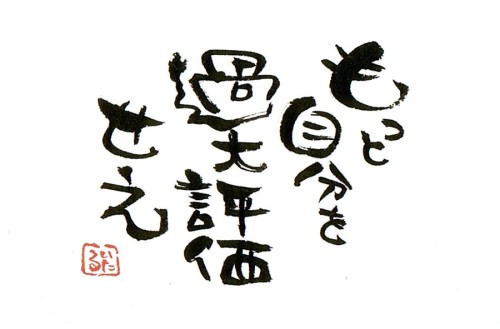 もっと
自分を
過大評価
せえ